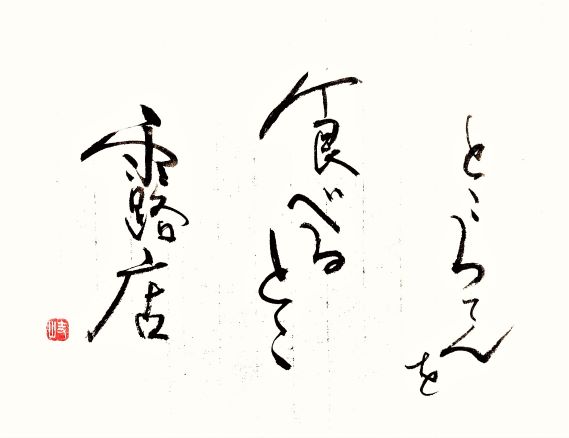 ところてんを
食べるとこ
露店